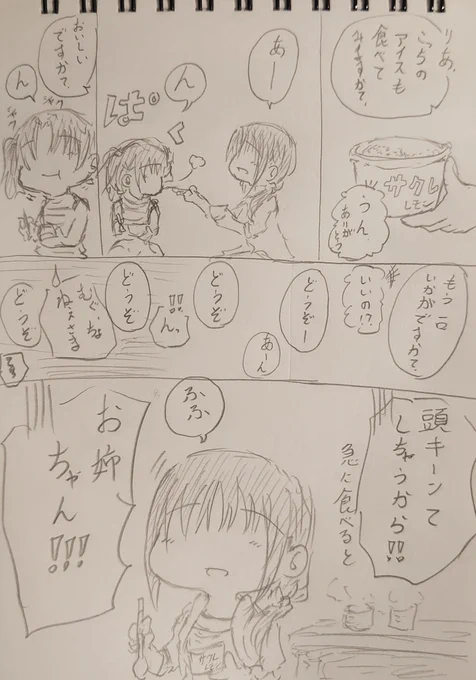 りあ、
こちらの
アイスも
食べて
みますか?
サクレ
レモン
うん
ありがとう
あー
ん
ぱく
おいしい
ですか?
ん
シャク
シャク
もう一口
いかがですか?
いいの!?
どうぞー
あーん
どうぞ
ん、!!
どうぞ
どうぞ
急に食べると
頭キーンて
しちゃうから!!
ふふ
お姉
ちゃん!!!
サクレ